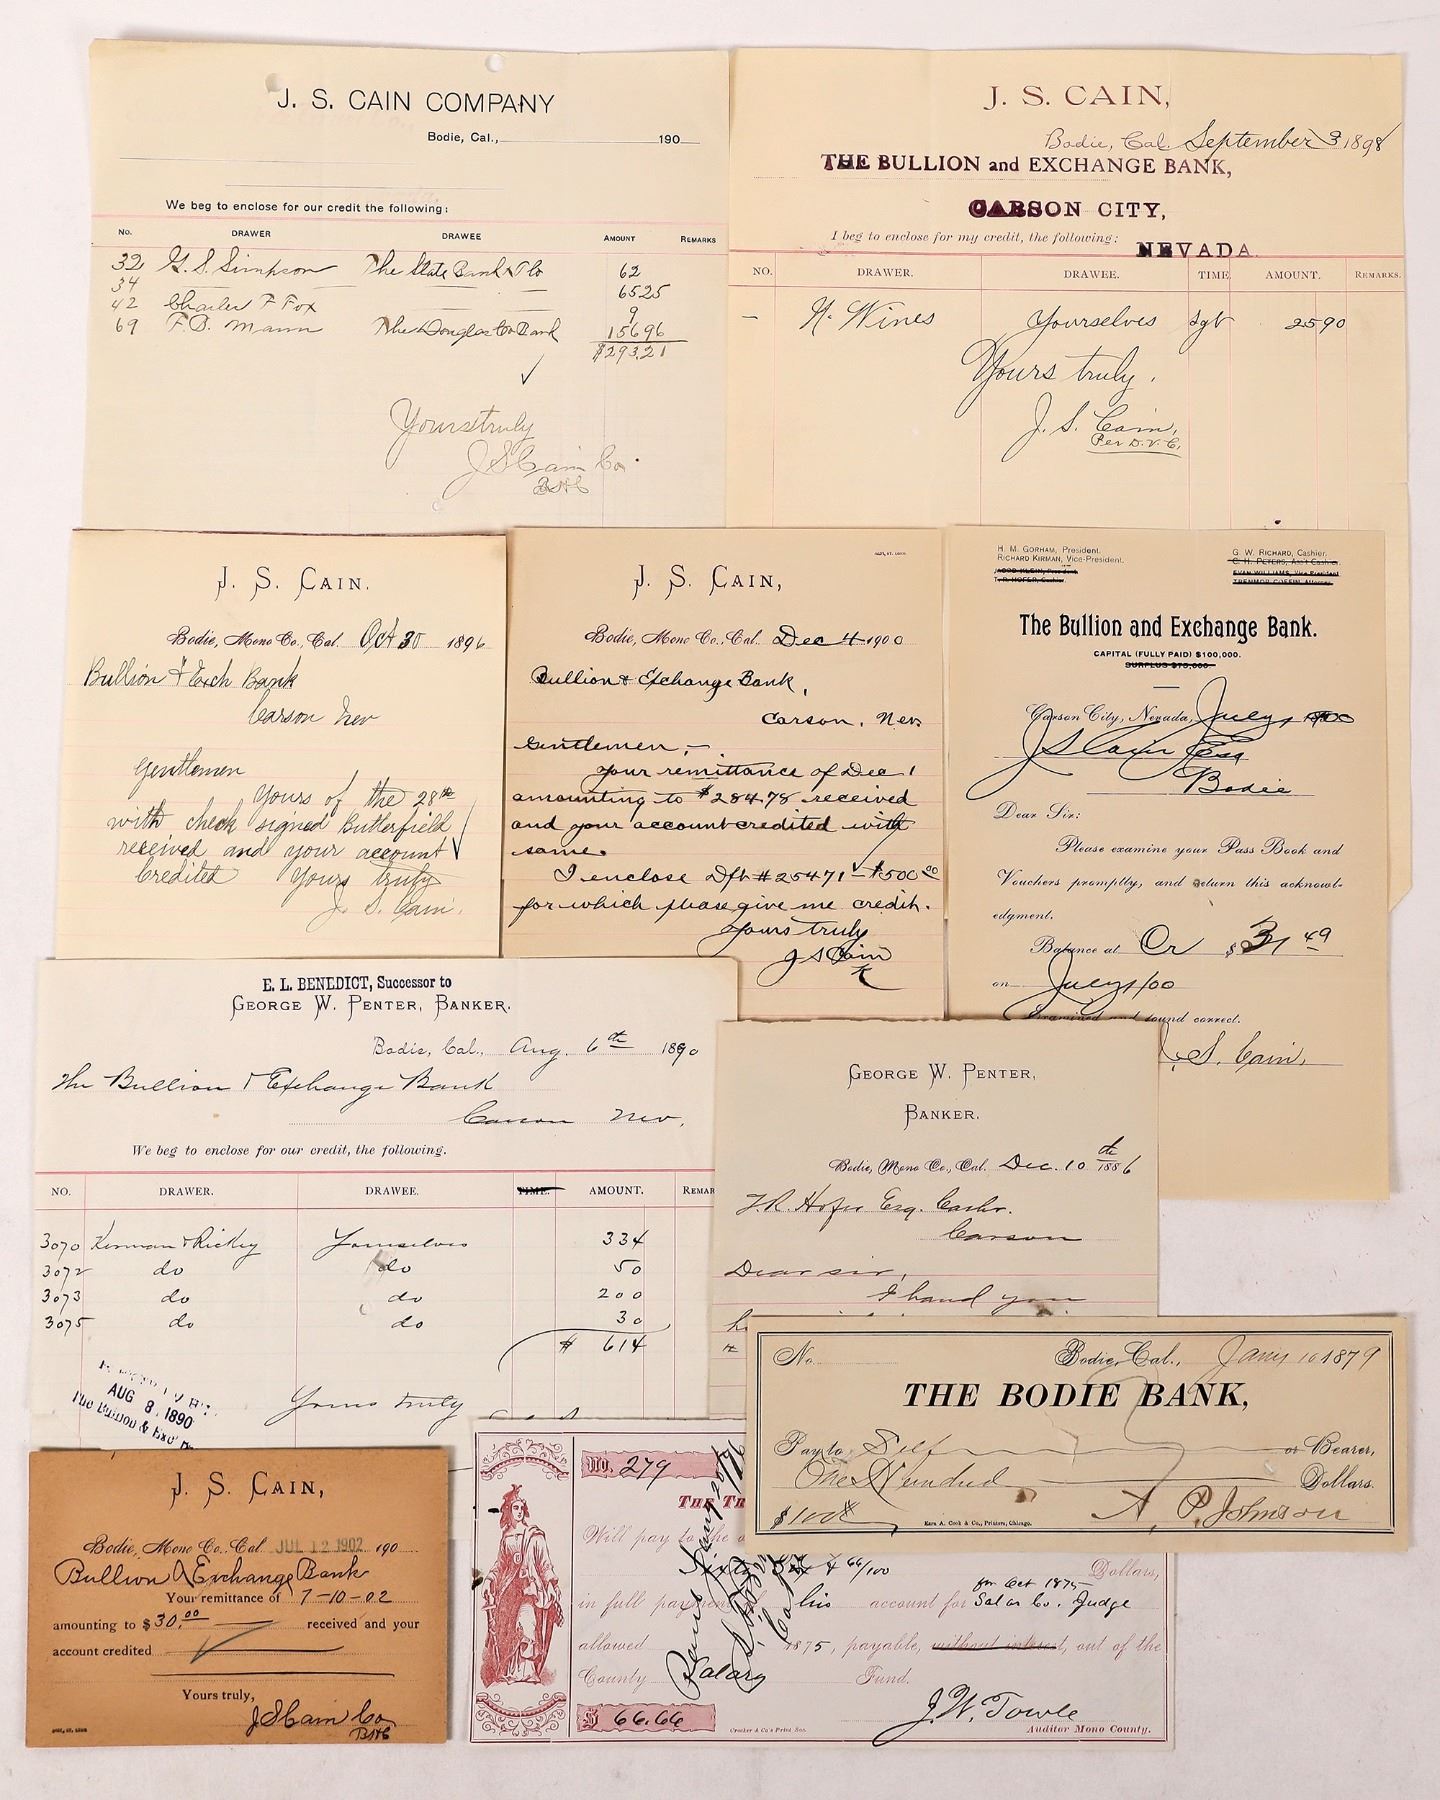 J. S. CAIN COMPANY
Bodie, Cal., 190
We beg to enclose for our credit the following:
No. DRAWER DRAWEE AMOUNT REMARKS
32 G. S. Simpson The State Bank & T Co 62
34 — — — 6525
42 Charles F Fox 9
69 F. D. Mann The Douglas Co Bank 15696
$293.21
Yours truly
J S Cain Co
J. S. CAIN,
Bodie, Cal. September 3 1898
THE BULLION and EXCHANGE BANK,
CARSON CITY,
I beg to enclose for my credit, the following:
NEVADA.
NO. DRAWER. DRAWEE. TIME. AMOUNT. REMARKS.
— N. Wines Yourselves Sgt 2590
Yours truly,
J. S. Cain,
Per D. V. C.
J. S. CAIN.
Bodie, Mono Co., Cal. Oct 30 1896
Bullion & Exch Bank
Carson Nev
Gentlemen
Yours of the 28th
with check signed Butterfield
received and your account
Credited Yours truly
J. S. Cain.
J. S. CAIN,
Bodie, Mono Co., Cal. Dec 4 1900
Bullion & Exchange Bank,
Carson, Nev
Gentlemen,—
Your remittance of Dec 1
amounting to $284.78 received
and your account credited with
same.
I enclose Dft # 25471 – $500 00
for which please give me credit.
Yours truly
J S Cain
K
H. M. GORHAM, President.
RICHARD KIRMAN, Vice-President.
JACOB KLEIN, President
T. R. HOFER, Cashier.
G. W. RICHARD, Cashier.
C. H. PETERS, Ass't Cashier.
EVAN WILLIAMS, Vice President
TRENMOR COFFIN, Attorney
The Bullion and Exchange Bank.
CAPITAL (FULLY PAID) $100,000.
SURPLUS $75,000
Carson City, Nevada, July 1 1900
J S Cain Esq
Bodie
Dear Sir:
Please examine your Pass Book and
Vouchers promptly, and return this acknowl-
edgment.
Balance at Cr $31 49
on July 1/00
Examined and found correct.
J. S. Cain,
E. L. BENEDICT, Successor to
GEORGE W. PENTER, BANKER.
Bodie, Cal., Aug. 6th 1890
The Bullion & Exchange Bank
Carson Nev.
We beg to enclose for our credit, the following.
NO. DRAWER. DRAWEE. TIME. AMOUNT. REMAR
3070 Kirman & Rickey Yourselves 334
3072 do do 50
3073 do do 200
3075 do do 30
$ 614
Yours truly
AUG 8 1890
The Bullion & Exc
GEORGE W. PENTER,
BANKER.
Bodie, Mono Co., Cal. Dec. 10th 1886
T. R. Hofer Esq. Cashr.
Carson
Dear sir,
I hand you
No. Bodie, Cal., Jany 10 1879
THE BODIE BANK,
Pay to Self or Bearer,
One Hundred Dollars.
$100
A. P. Johnson
Ezra A. Cook & Co., Printers, Chicago.
J. S. CAIN,
Bodie, Mono Co., Cal. JUL 12 1902 190
Bullion & Exchange Bank
Your remittance of 7-10-02
amounting to $30.00 received and your
account credited
Yours truly,
J S Cain Co
No. 279
THE TR
Will pay to the o
Sixty Six & 66/100 Dollars,
for Oct 1875
in full payment his account for Salar Co. Judge
allowed 1875, payable, without interest, out of the
County Salary Fund.
$ 66.66
Crocker & Co's Print Sac.
J. W. Towle
Auditor Mono County.